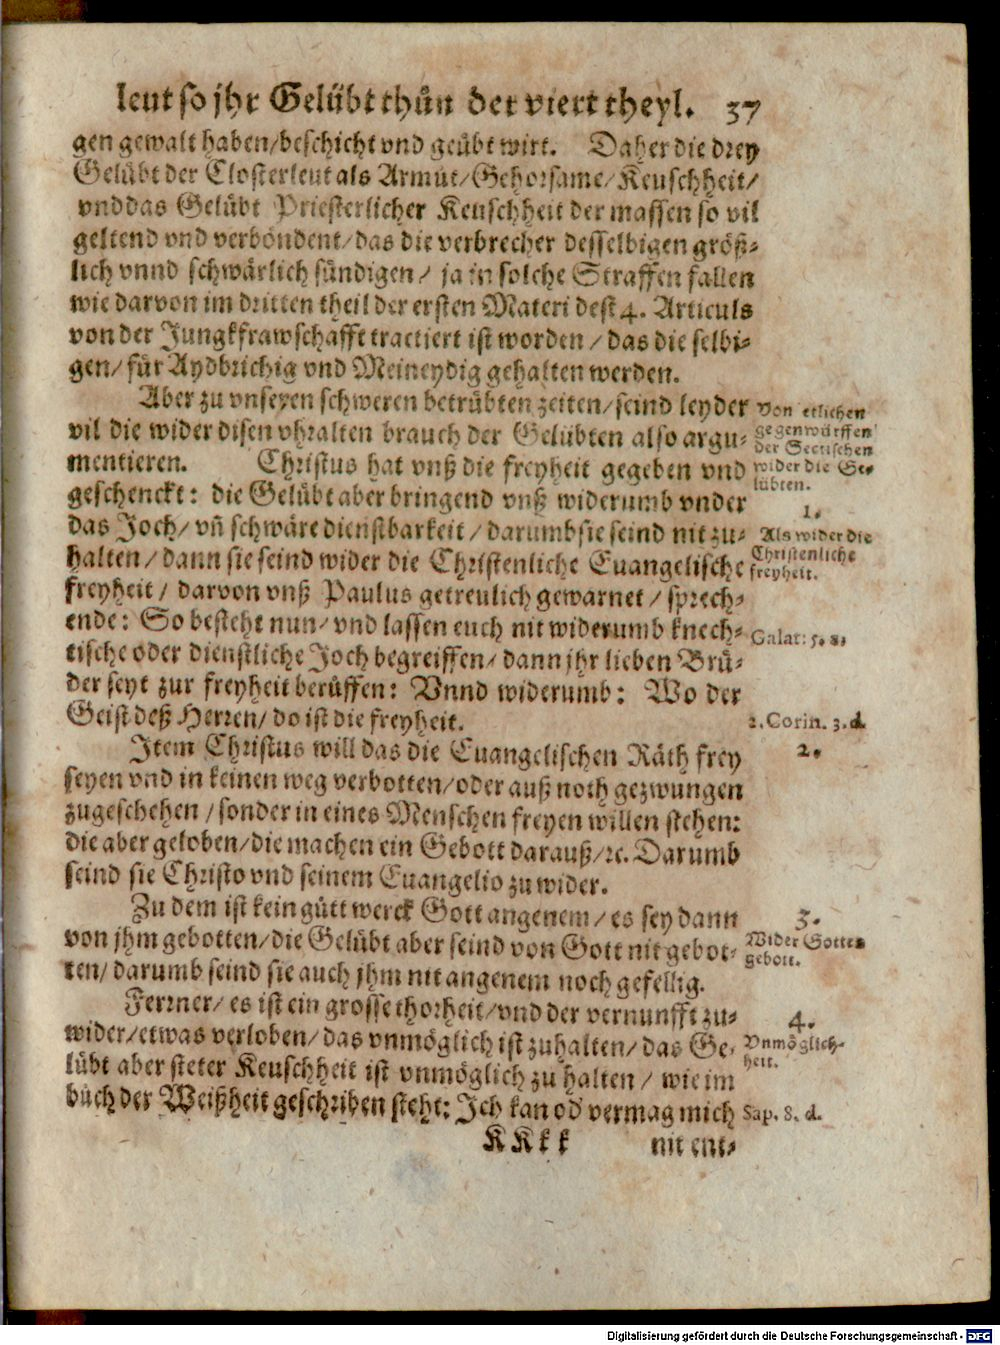 leut so jhr Gelübt thůn der viert theyl. 37
gen gewalt haben/beschicht vnd geübt wirt. Daher die drey
Gelübt der Closterleut als Armůt/Gehorsame/Keuschheit/
vnd das Gelübt Priesterlicher Keuschheit der massen so vil
geltend vnd verbondent/das die verbrecher desselbigen größ-
lich vnnd schwärlich sündigen/ ja in solche Straffen fallen
wie darvon im dritten theil der ersten Materi deß 4. Articuls
von der Jungkfrawschafft tractiert ist worden/das die selbi-
gen/für Aydbrichig vnd Meineydig gehalten werden.
Aber zu vnseren schweren betrübten zeiten/seind leyder
vil die wider disen vhralten brauch der Gelübten also argu-
mentieren. Christus hat vnß die freyheit gegeben vnd
geschenckt: die Gelübt aber bringend vnß widerumb vnder
das Joch/vñ schwäre dienstbarkeit/darumb sie seind nit zu-
halten/dann sie seind wider die Christenliche Euangelische
freyheit/darvon vnß Paulus getreulich gewarnet/sprech-
ende: So besteht nun/vnd lassen euch nit widerumb knech-
tische oder dienstliche Joch begreiffen/dann jhr lieben Brü-
der seyt zur freyheit berüffen: Vnnd widerumb: Wo der
Geist deß Herren/do ist die freyheit.
Item Christus will das die Euangelischen Räth frey
seyen vnd in keinen weg verbotten/oder auß noth gezwungen
zugeschehen/sonder in eines Menschen freyen willen stehen:
die aber geloben/die machen ein Gebott darauß/ꝛc. Darumb
seind sie Christo vnd seinem Euangelio zu wider.
Zu dem ist kein gůtt werck Gott angenem/es sey dann
von jhm gebotten/die Gelübt aber seind von Gott nit gebot-
ten/darumb seind sie auch jhm nit angenem noch gefellig.
Ferrner/es ist ein grosse thorheit/vnd der vernunfft zu-
wider/etwas verloben/das vnmöglich ist zuhalten/das Ge-
lübt aber steter Keuschheit ist vnmöglich zu halten/wie im
bůch der Weißheit geschriben steht: Ich kan od vermag mich
KKkk nit ent-
Von etlichen
gegenwürffen
der Sectischen
wider die Ge-
lübten.
1.
Als wider die
Christenliche
freyheit.
Galat: 5. a.
2. Corin. 3. d.
2.
3.
Wider Gottes
gebott.
4.
Vnmöglich-
heit.
Sap. 8. d.
Digitalisierung gefördert durch die Deutsche Forschungsgemeinschaft - DFG